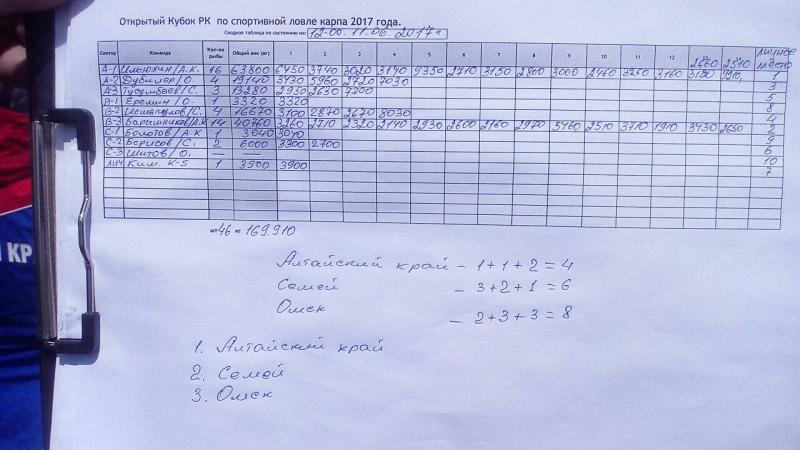 Открытый Кубок РК по спортивной ловле карпа 2017 года.
Сводная таблица по состоянию на: 12-00. 11.06.2017г
Сектор Команда Кол-во рыбы Общий вес (кг) 1 2 3 4 5 6 7 8 9 10 11 12 2660 2510 личное место
А-1 Ильюхин/А.К. 16 63800 6450 3740 3020 3140 9350 2710 3150 2800 3000 2460 3260 3160 1
А-2 Дубилер/О. 4 19140 5960 2720 7030 3
А-3 3 13280 2950 2630 5
В-1 Еремин/О. 1 3320 3320 8
В-2 4 16670 3100 2870 2670 8030 4
В-3 Барышников/А.К 14 40760 3260 2710 2320 2140 2930 2600 2160 2970 5460 2510 3710 1910 3430 2650 2
С-1 Болотов/А.К 1 3040 3040 9
С-2 Борисов/С. 2 6000 3300 2700 6
С-3 Шитов/О. — 10
лич Ким. К-5 1 3900 3900 7
шт 46 кг 169.910
КР
Алтайский край – 1+1+2=4
Семей – 3+2+1=6
Омск – 2+3+3=8
1. Алтайский край
2. Семей
3. Омск